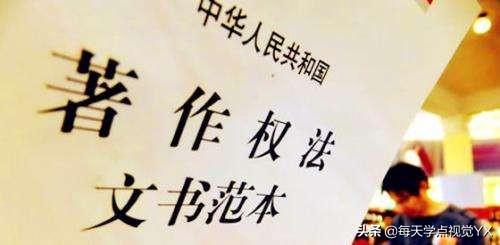 中华人民共和国
著作权法
文书范本
头条 @每天学点视觉YX